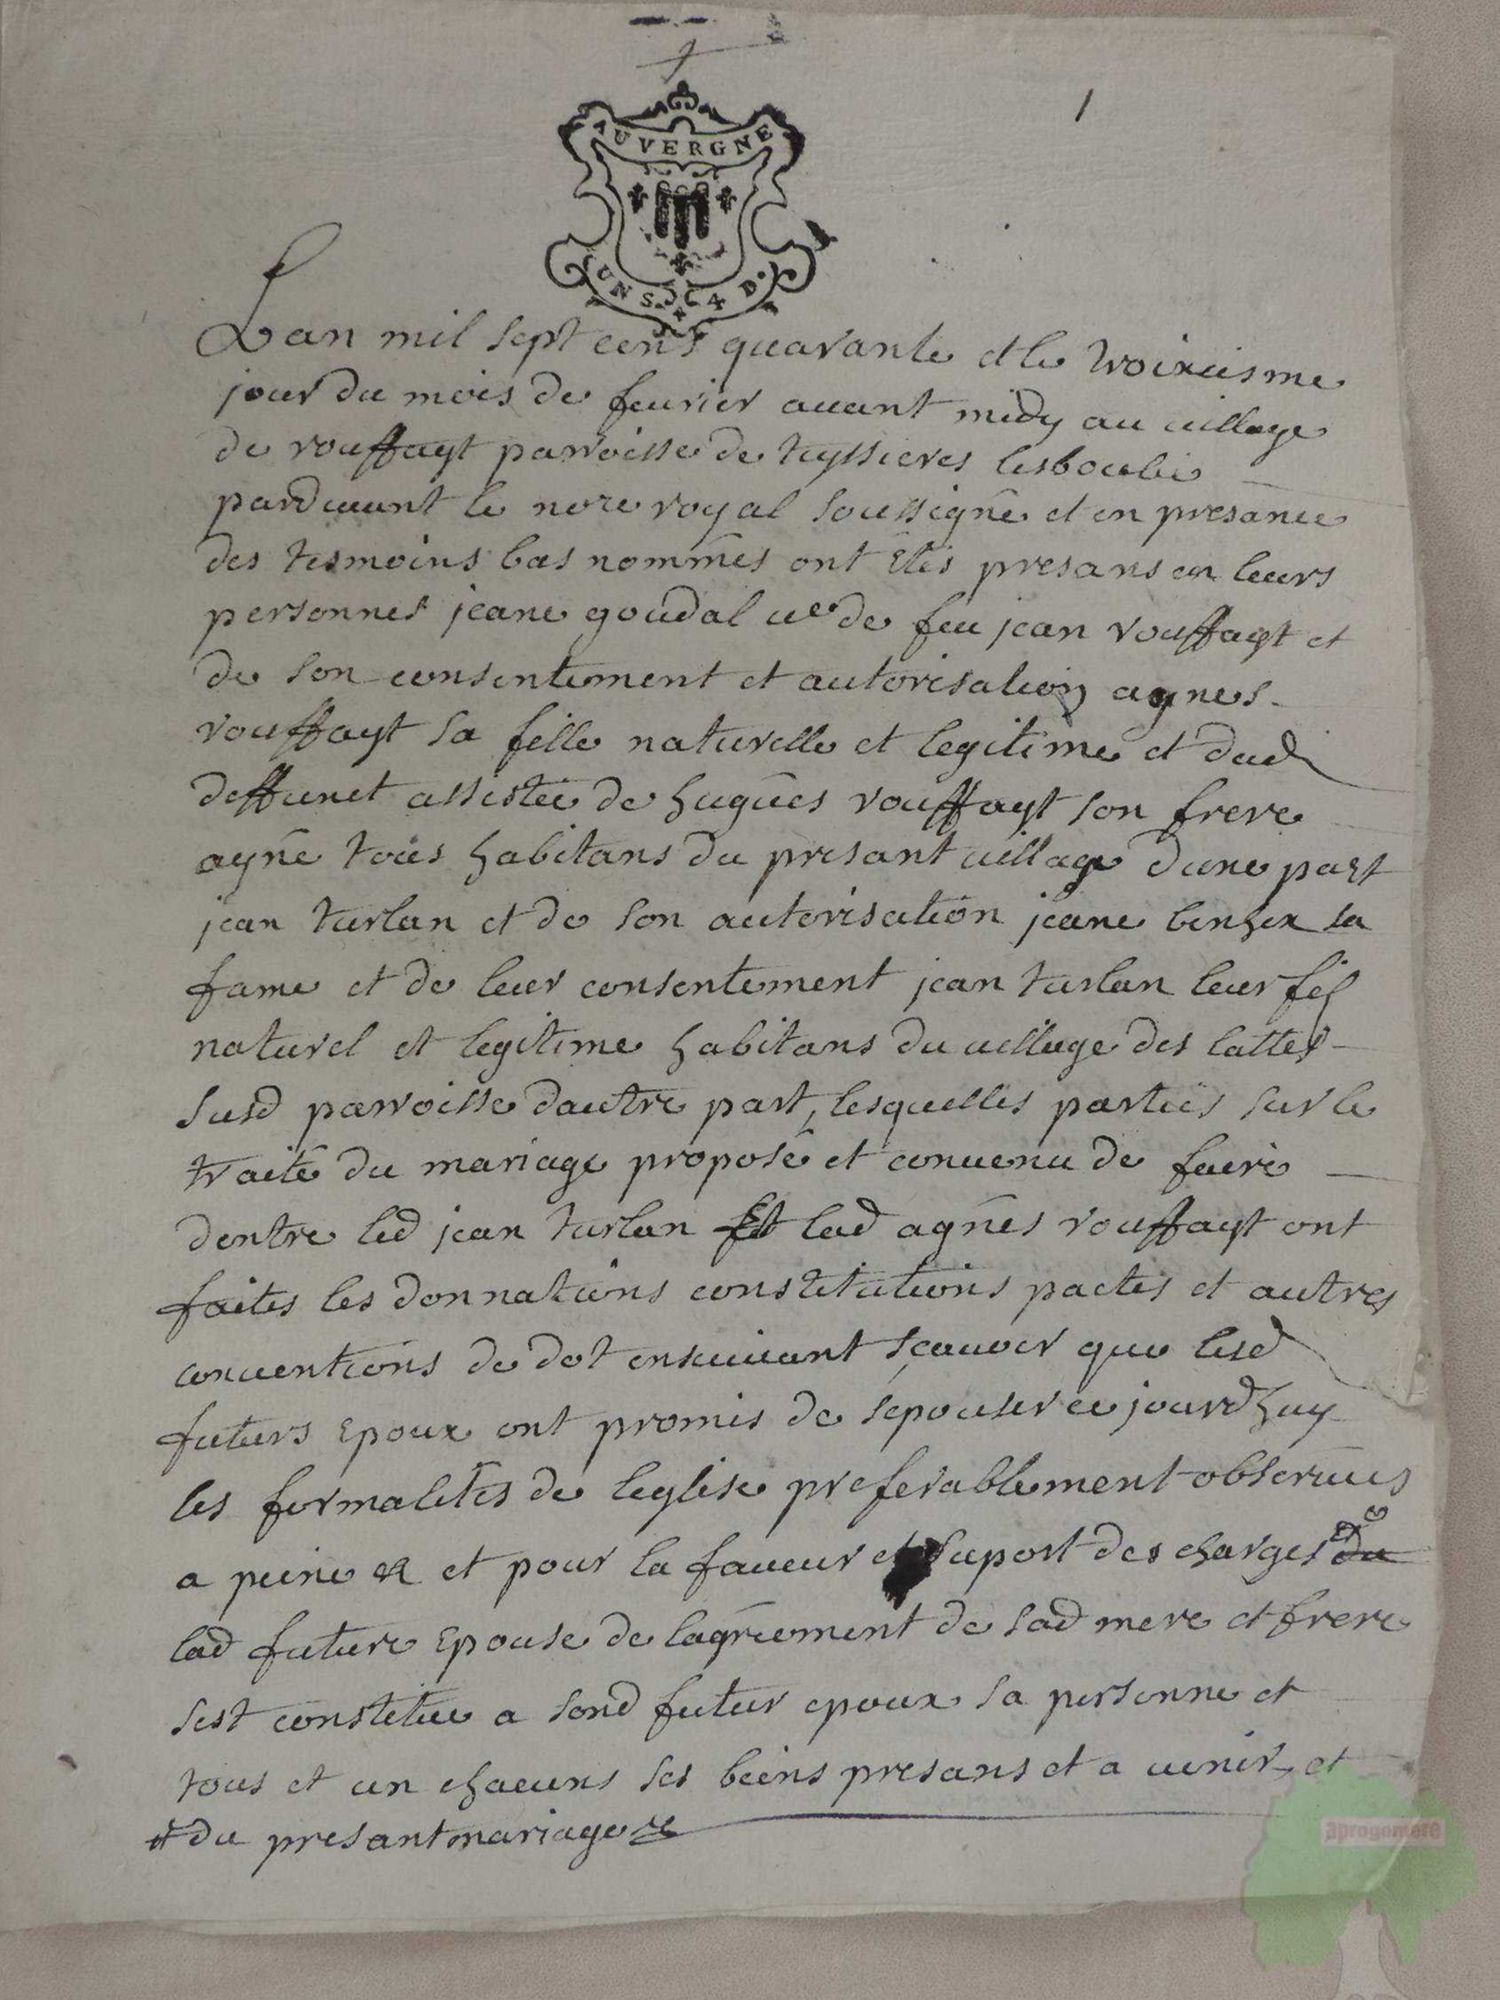 1
AUVERGNE
UN S. 4 D.
Lan mil sept cens quarante et le troixiesme
jour du mois de feurier auant midy au uillage
de rouffayt parroisse de teyssieres lesboulie
parduuant le nore royal soussigné et en presance
des tesmoins bas nommés ont étés presans en leurs
personnes jeane goudal ue de feu jean rouffayt et
de son consentement et autorisation agnes
rouffayt sa fille naturelle et legitime et dud
deffunct assistée de hugues rouffayt son frere
ayné tous habitans du presant uillage dune part
jean turlan et de son autorisation jeane benhex sa
fame et de leur consentement jean turlan leur fils
naturel et legitime habitans du uillage des lattes
susd parroisse dautre part, lesquelles parties sur le
traité du mariage proposé et conuenu de faire
dentre led jean turlan Et lad agnés rouffayt ont
faites les donnations constitutions pactes et autres
conuentions de dot ensuiuant sçauoir que lesd
futurs epoux ont promis de sepouser ce jourdhuy
les formalités de leglise preferablement obseruées
a peine et pour la faueur et suport des charges du
lad future epouse de lagréement de sad mere et frere
sest constituee a sond futur epoux sa personne et
tous et un chacuns ses biens presans et a uenir, et
# du presant mariage
aprogemere